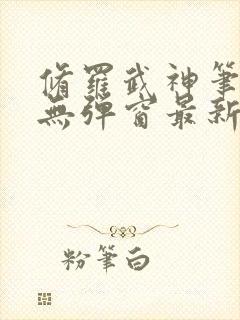 脩羅武神筆
無彈窗最新
粉筆白